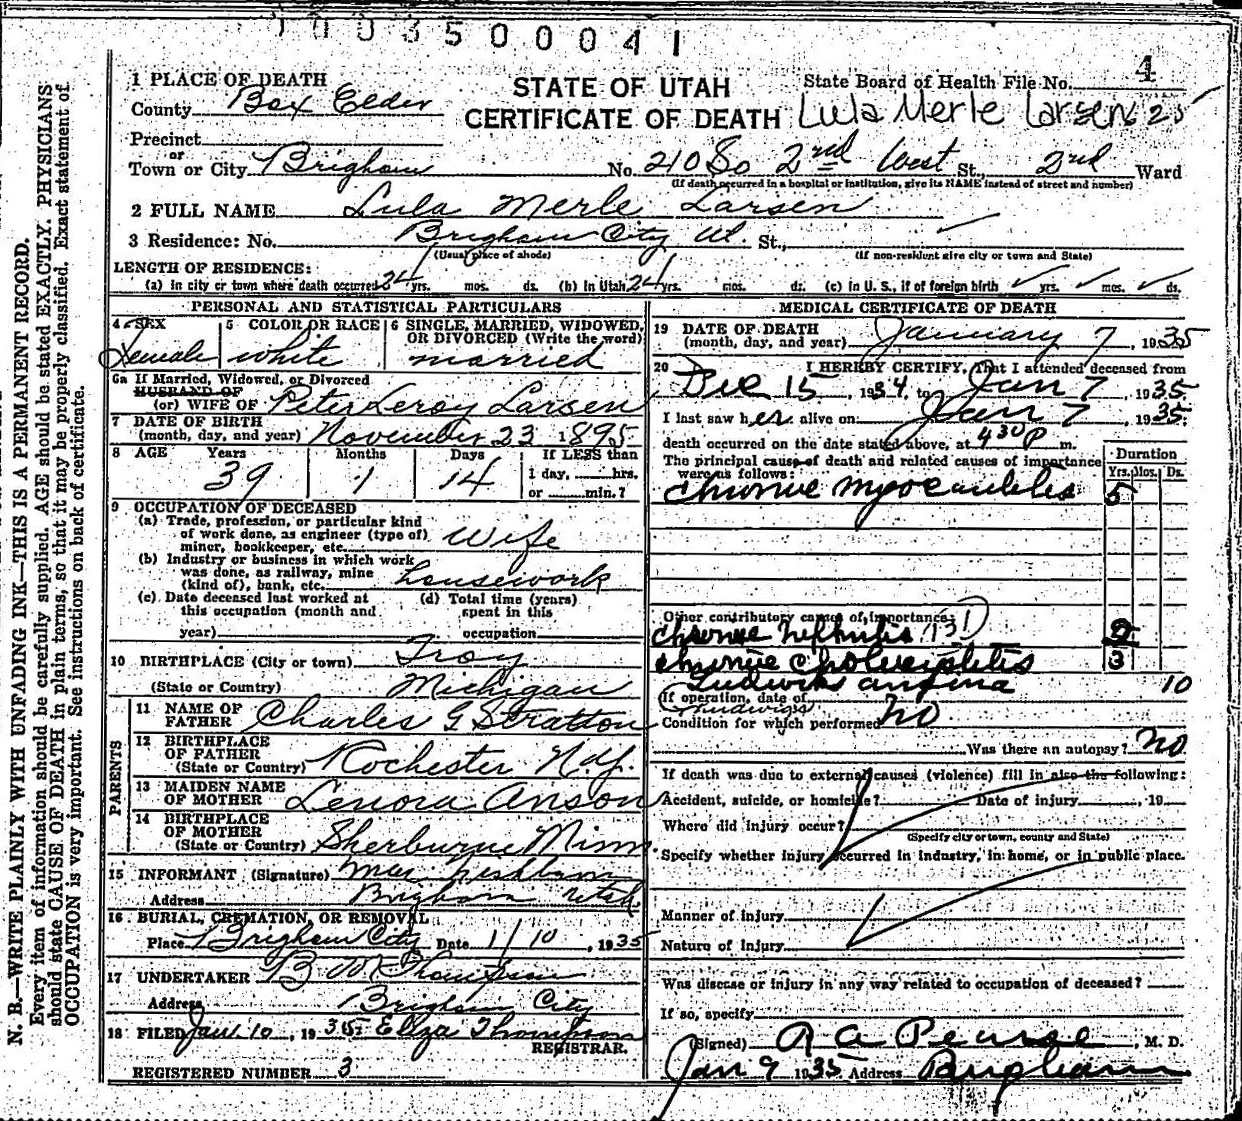 1003500041
1 PLACE OF DEATH
County Box Elder
STATE OF UTAH
CERTIFICATE OF DEATH
State Board of Health File No. 4
Lula Merle Larsen 25
Precinct
or
Town or City Brigham No. 210 So 2nd West St., 2nd Ward
(If death occurred in a hospital or institution, give its NAME instead of street and number)
2 FULL NAME Lula Merle Larsen
3 Residence: No. Brigham City Ut. St.,
(Usual place of abode) (If non-resident give city or town and State)
LENGTH OF RESIDENCE:
(a) In city or town where death occurred 24 yrs. mos. ds. (b) In Utah 24 yrs. mos. ds. (c) in U. S., if of foreign birth ✓ yrs. ✓ mos. ✓ ds.
PERSONAL AND STATISTICAL PARTICULARS
4 SEX
Female
5 COLOR OR RACE
white
6 SINGLE, MARRIED, WIDOWED,
OR DIVORCED (Write the word)
married
6a If Married, Widowed, or Divorced
HUSBAND OF
(or) WIFE OF Peter Leroy Larsen
7 DATE OF BIRTH
(month, day, and year) November 23 1895
8 AGE Years Months Days If LESS than
1 day, hrs.
or min.?
39 1 14
9 OCCUPATION OF DECEASED
(a) Trade, profession, or particular kind
of work done, as engineer (type of)
miner, bookkeeper, etc. Wife
(b) Industry or business in which work
was done, as railway, mine
(kind of), bank, etc. housework
(c) Date deceased last worked at
this occupation (month and
year)
(d) Total time (years)
spent in this
occupation
10 BIRTHPLACE (City or town) Troy
(State or Country) Michigan
PARENTS
11 NAME OF
FATHER Charles G Stratton
12 BIRTHPLACE
OF FATHER
(State or Country) Rochester N.Y.
13 MAIDEN NAME
OF MOTHER Lenora Anson
14 BIRTHPLACE
OF MOTHER
(State or Country) Sherburne Minn.
15 INFORMANT (Signature)
Address Brigham Utah
16 BURIAL, CREMATION, OR REMOVAL
Place Brigham City Date 1/10, 1935
17 UNDERTAKER B M Thompson
Address Brigham City
18 FILED Jan. 10, 1935 Eliza Thompson
REGISTRAR.
REGISTERED NUMBER 3
MEDICAL CERTIFICATE OF DEATH
19 DATE OF DEATH
(month, day, and year) January 7, 1935
20 I HEREBY CERTIFY, That I attended deceased from
Dec 15, 1934, to Jan 7, 1935.
I last saw her alive on Jan 7, 1935.
death occurred on the date stated above, at 430 P m.
The principal cause of death and related causes of importance
were as follows:
Duration
Yrs. Mos. Ds.
chronic myocarditis 5
Other contributory causes of importance:
chronic nephritis 131 2
chronic cholecystitis 3
Ludwigs angina 10
If operation, date of
Ludwigs
Condition for which performed no
Was there an autopsy? no
If death was due to external causes (violence) fill in also the following:
Accident, suicide, or homicide? Date of injury , 19
Where did injury occur?
(Specify city or town, county and State)
Specify whether injury occurred in industry, in home, or in public place.
Manner of injury
Nature of injury
Was disease or injury in any way related to occupation of deceased?
If so, specify
(Signed) R A Pearse, M. D.
Jan 9 1935 Address Brigham
N. B.—WRITE PLAINLY WITH UNFADING INK—THIS IS A PERMANENT RECORD.
Every item of information should be carefully supplied. AGE should be stated EXACTLY. PHYSICIANS
should state CAUSE OF DEATH in plain terms, so that it may be properly classified. Exact statement of
OCCUPATION is very important. See instructions on back of certificate.